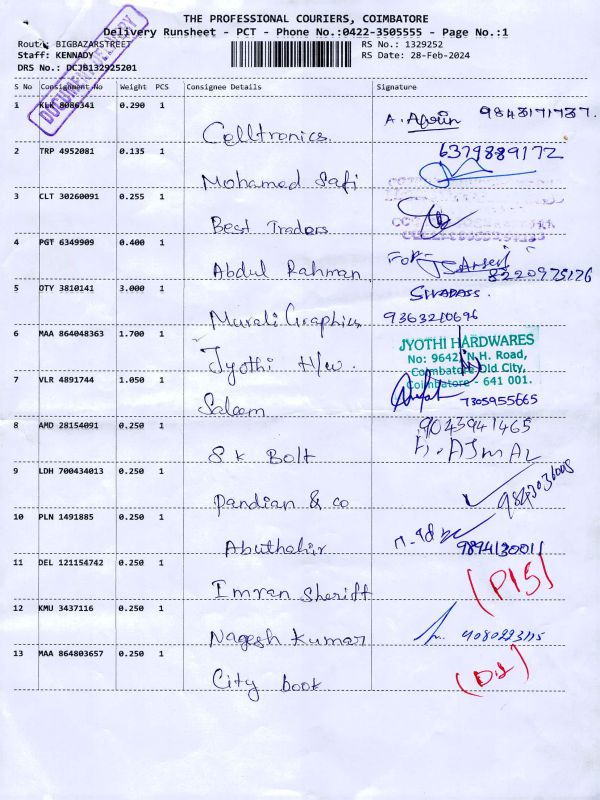 THE PROFESSIONAL COURIERS, COIMBATORE
Delivery Runsheet - PCT - Phone No.:0422-3505555 - Page No.:1
Route: BIGBAZARSTREET RS No.: 1329252
Staff: KENNADY RS Date: 28-Feb-2024
DRS No.: DCJB132925201
S No Consignment No Weight PCS Consignee Details Signature
1 KLK 8086341 0.290 1 Celltronics. A. Afrin 9843171737.
2 TRP 4952081 0.135 1 Mohamed Safi 6379889172
3 CLT 30260091 0.255 1 Best Traders
4 PGT 6349909 0.400 1 Abdul Rahman FOR 8220975126
5 DTY 3810141 3.000 1 Murali Graphics SIVADASS. 9363210696
6 MAA 864048363 1.700 1 Jyothi H/w.
JYOTHI HARDWARES
No: 9642, N.H. Road,
Coimbatore Old City,
Coimbatore - 641 001.
7 VLR 4891744 1.050 1 Saleem 7305955665
8 AMD 28154091 0.250 1 S K Bolt 9043941465
AJMAL
9 LDH 700434013 0.250 1 Pandian & co
10 PLN 1491885 0.250 1 Abuthahir 9894130011
11 DEL 121154742 0.250 1 Imran Sheriff
12 KMU 3437116 0.250 1 Nagesh Kumar
13 MAA 864803657 0.250 1 City book